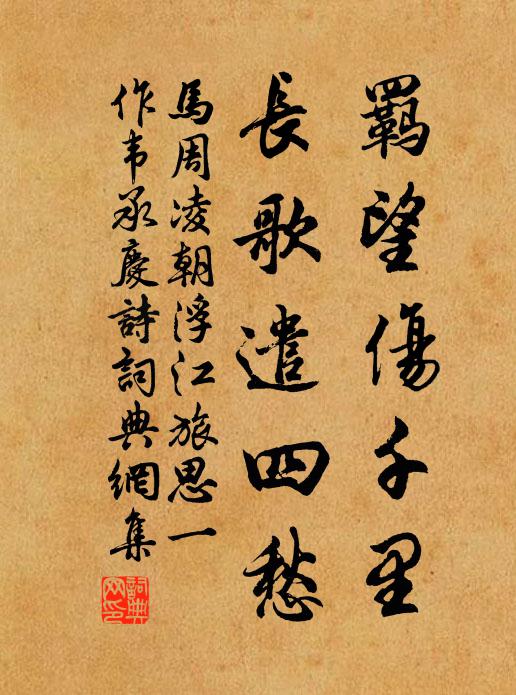 羁望傷千里
長歌遣四愁
馬周凌朝浮江旅思一
作韦承慶詩詞典網集
詞典
网印